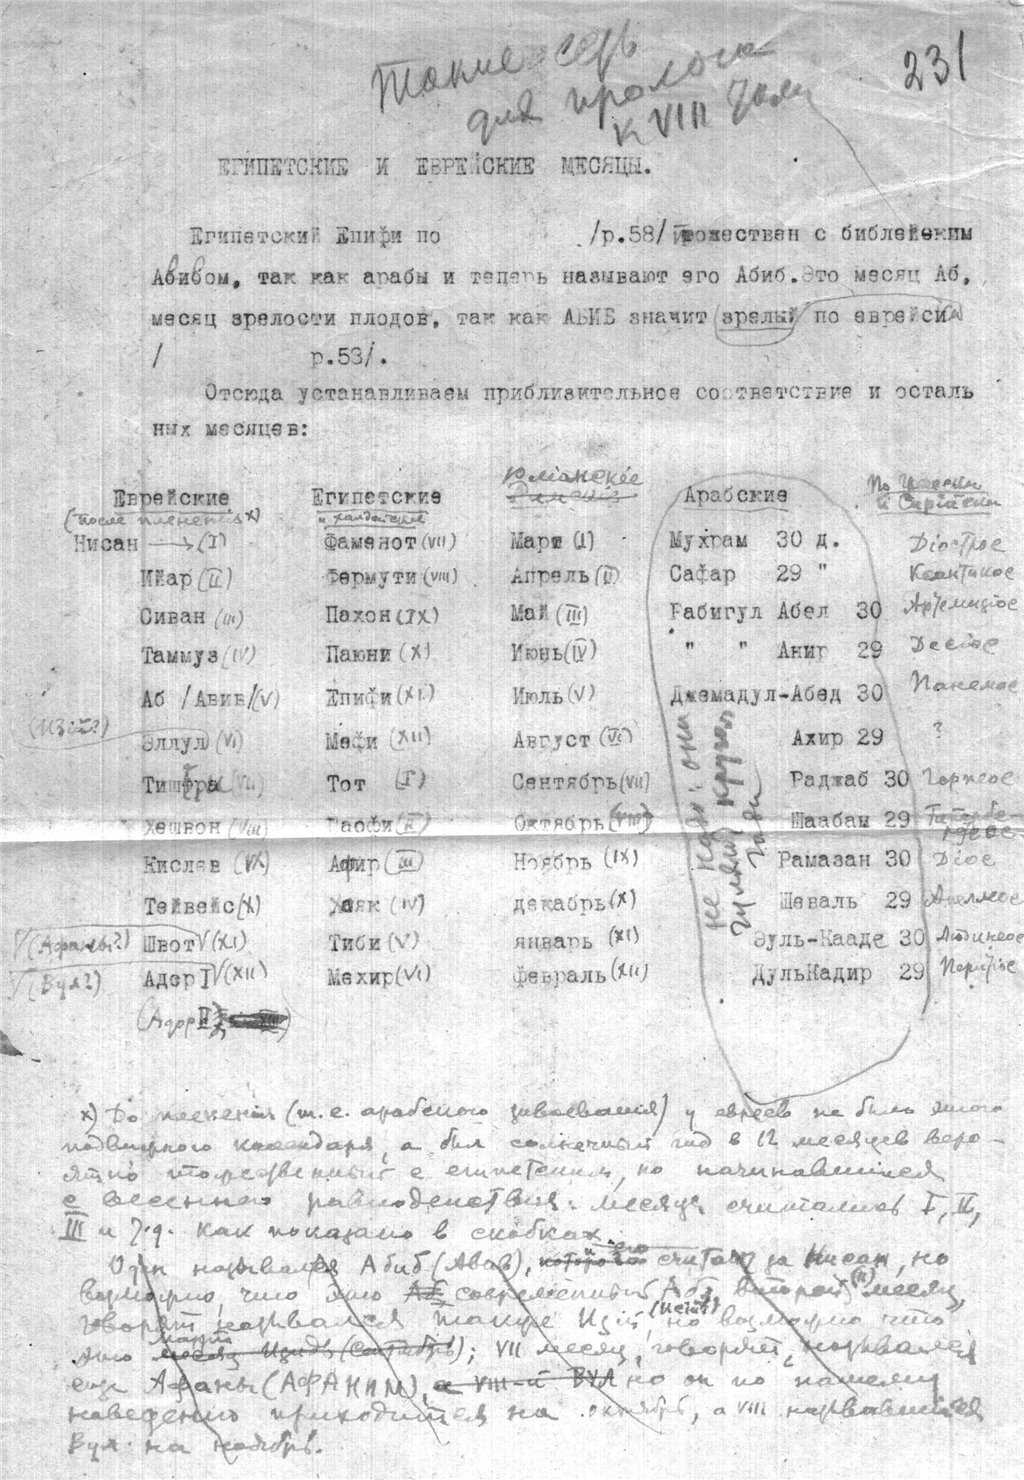 231
для пролога
к VIII
ЕГИПЕТСКИЕ И ЕВРЕЙСКИЕ МЕСЯЦЫ.
Египетский Епифи по /р.58/ тожествен с библейским
Авивом, так как арабы и теперь называют его Абиб. Это месяц Аб,
месяц зрелости плодов, так как АБИБ значит зрелый по еврейски
/ р.58/.
Отсюда устанавливаем приблизительное соответствие и осталь
ных месяцев:
Еврейские Египетские Юлианские Арабские По Гречески и Сирийски
(после пленения x) и халдейские
Нисан → (I) Фаменот (VII) Март (I) Мухрам 30 д. Діострос
Ийар (II) Фермути (VIII) Апрель (II) Сафар 29 " Ксантикос
Сиван (III) Пахон (IX) Май (III) Рабигул Абел 30 Артемизіос
Таммуз (IV) Паюни (X) Июнь (IV) " " Ахир 29 Десіос
Аб /Авив/ (V) Епифи (XI) Июль (V) Джемадул-Абед 30 Панемос
Эллул (VI) Мефи (XII) Август (VI) Ахир 29 ?
Тишри (VII) Тот (I) Сентябрь (VII) Раджаб 30 Горпеос
Хешвон (VIII) Паофи (II) Октябрь (VIII) Шаабам 29
Кислев (IX) Афир (III) Ноябрь (IX) Рамазан 30 Діос
Тейвейс (X) Хояк (IV) декабрь (X) Шеваль 29 Апеллеос
V (Афаны?) Швот V (XI) Тиби (V) январь (XI) Зуль-Кааде 30 Аюдинеос
V (Вул?) Адер I V (XII) Мехир (VI) февраль (XII) ДульКадир 29 Перитіос
(Адар II)
не надо: они
гуляют кругом
года
x) До пленения (т.е. арабского завоевания) у евреев не было этого
подвижного календаря, а был солнечный год в 12 месяцев веро-
ятно тожественный с египетским, но начинавшийся
с весеннего равноденствия. Месяцы считались I, II,
III и т.д. как показано в скобках.
Один назывался Абиб (Авив), и его считают за Нисан, но
возможно, что это современный Аб, второй (II) месяц,
говорят назывался также Изій, но возможно что
это месяц Изиды (Сентябрь); VII месяц, говорят, назывался
еще Афаны (АФАНИМ), а VIII-й ВУЛ но он по нашему
наведению приходится на октябрь, а VIII называвшийся
Вул на ноябрь.